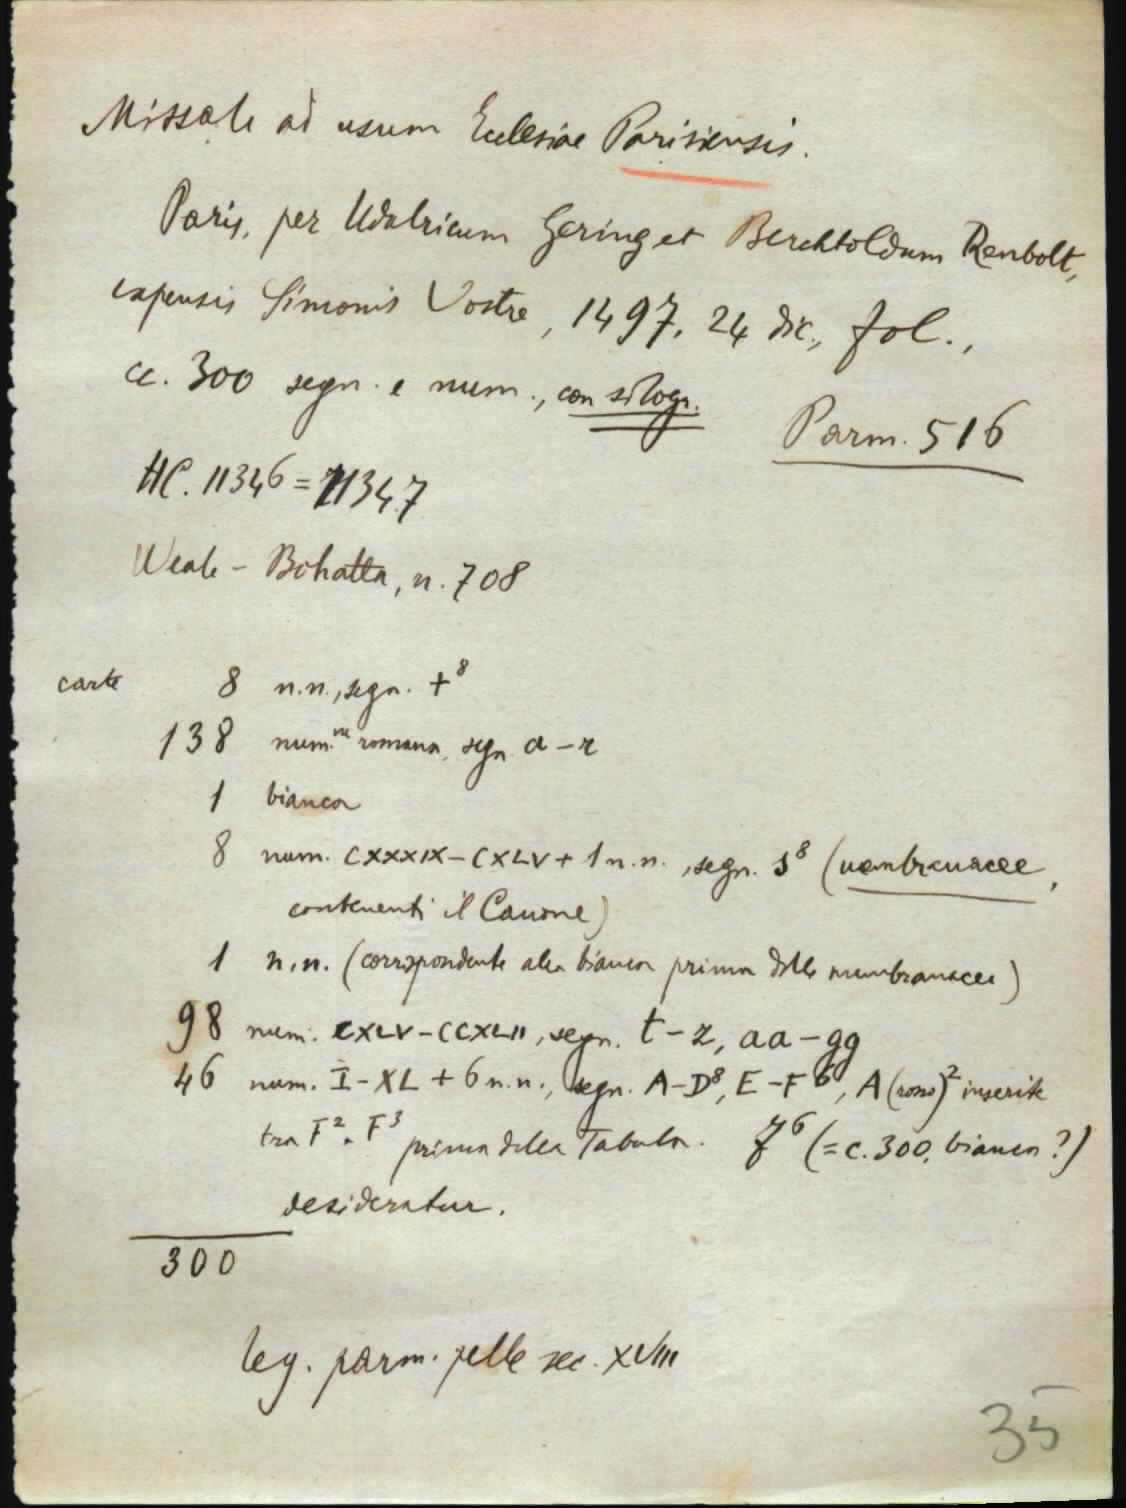 Missale ad usum Ecclesiae Parisiensis.
Paris, per Udalricum Gering et Berchtoldum Renbolt,
expensis Simonis Vostre, 1497, 24 dic., fol.,
cc. 300 segn. e num., con silogr.
Parm. 516
HC. 11346 = 11347
Weale - Bohatta, n. 708
carte 8 n.n., segn. +⁸
138 num.ne romana, segn. a - r
1 bianca
8 num. CXXXIX - CXLV + 1 n.n., segn. s⁸ (membranacee,
contenenti il Canone)
1 n.n. (corrispondente alla bianca prima delle membranacee)
98 num. CXLV - CCXLII, segn. t - z, aa - gg
46 num. I - XL + 6 n.n., segn. A - D⁸, E - F⁶, A (rosso)² inserite
tra F² e F³ prima della Tabula. F⁶ (= c. 300, bianca?)
desideratur.
300
leg. parm. pelle sec. XVIII
35